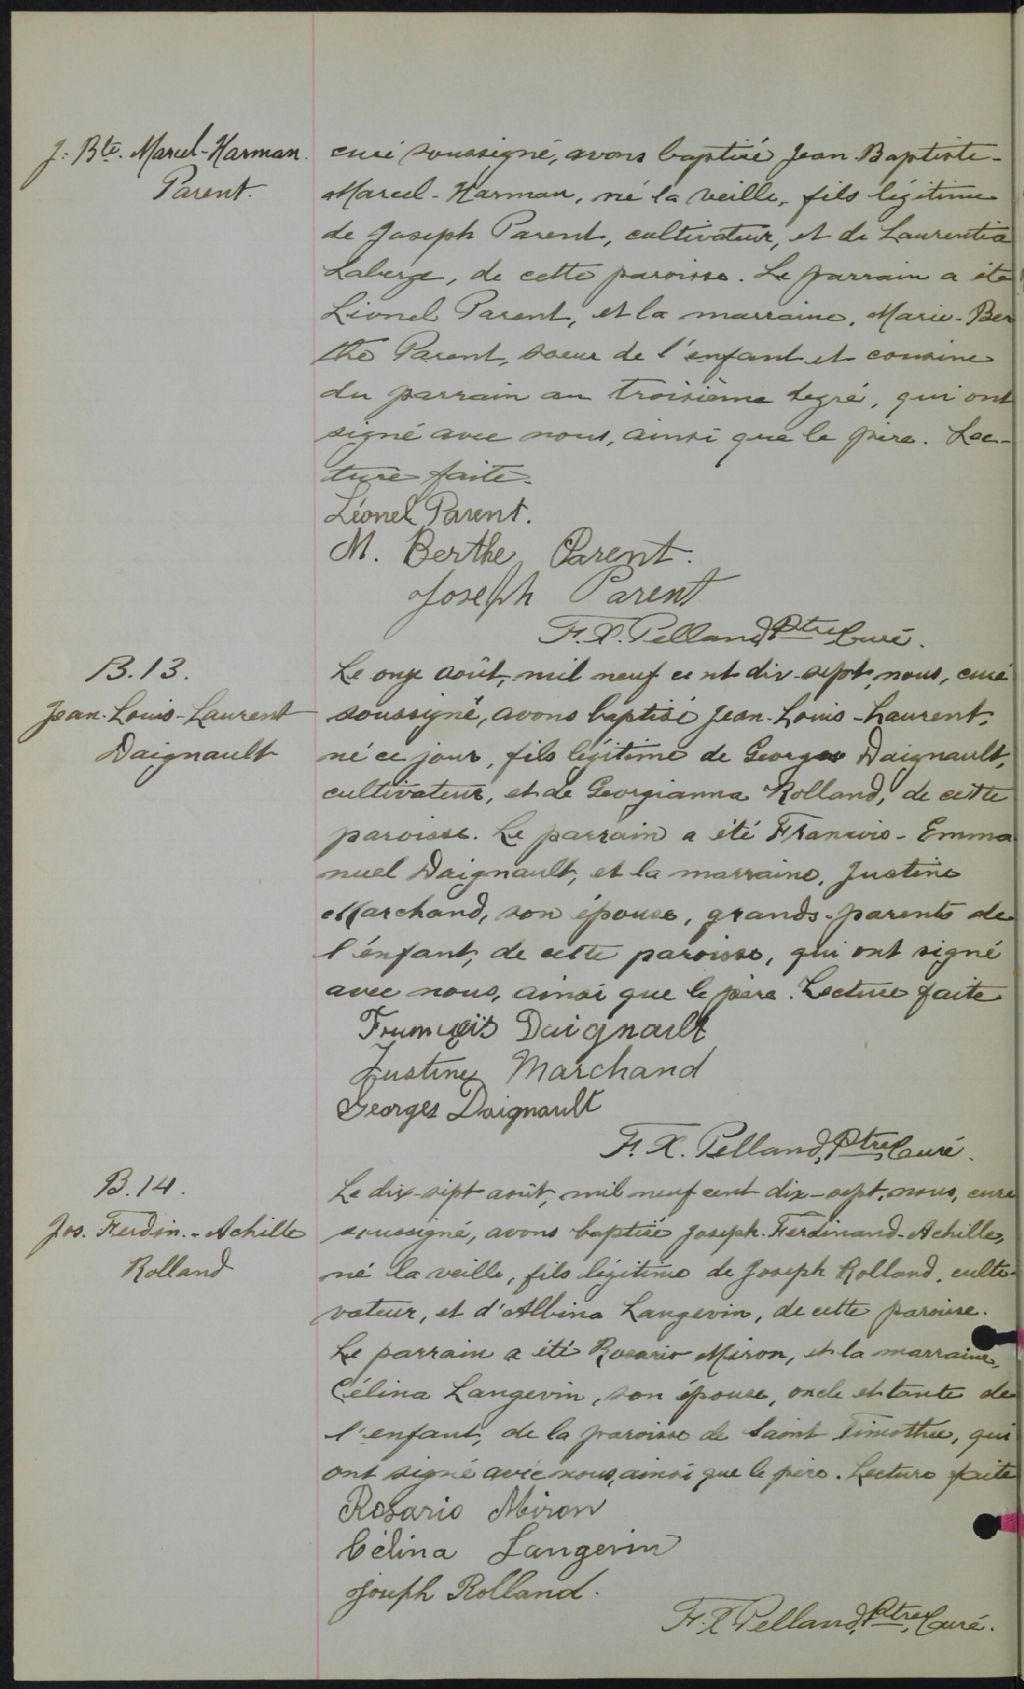 J. Bte. Marcel-Harman.
Parent.
curé soussigné, avons baptisé Jean-Baptiste-
Marcel-Harman, né la veille, fils légitime
de Joseph Parent, cultivateur, et de Laurentia
Laberge, de cette paroisse. Le parrain a été
Lionel Parent, et la marraine, Marie-Ber
the Parent, soeur de l'enfant et cousine
du parrain au troisième degré, qui ont
signé avec nous, ainsi que le père. Lec-
ture faite.
Léonel Parent.
M. Berthe Parent.
Joseph Parent
F. X. Pelland, Ptre, Curé.
B. 13.
Jean-Louis-Laurent
Daignault
Le onze août, mil neuf cent dix-sept, nous, curé
soussigné, avons baptisé Jean-Louis-Laurent,
né ce jour, fils légitime de Georges Daignault,
cultivateur, et de Georgianna Rolland, de cette
paroisse. Le parrain a été François-Emma
nuel Daignault, et la marraine, Justine
Marchand, son épouse, grands-parents de
l'enfant, de cette paroisse, qui ont signé
avec nous, ainsi que le père. Lecture faite
François Daignault
Justine Marchand
Georges Daignault
F. X. Pelland, Ptre, Curé.
B. 14.
Jos. Ferdin.-Achille
Rolland
Le dix-sept août, mil neuf cent dix-sept, nous, curé
soussigné, avons baptisé Joseph-Ferdinand-Achille,
né la veille, fils légitime de Joseph Rolland, culti-
vateur, et d'Albina Langevin, de cette paroisse.
Le parrain a été Rosario Miron, et la marraine,
Célina Langevin, son épouse, oncle et tante de
l'enfant, de la paroisse de Saint Timothée, qui
ont signé avec nous, ainsi que le père. Lecture faite
Rosario Miron
Célina Langevin
Joseph Rolland.
F. X Pelland, Ptre, Curé.